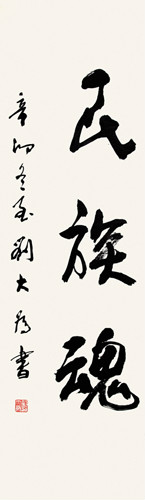 民族魂
辛卯冬至劉大為書